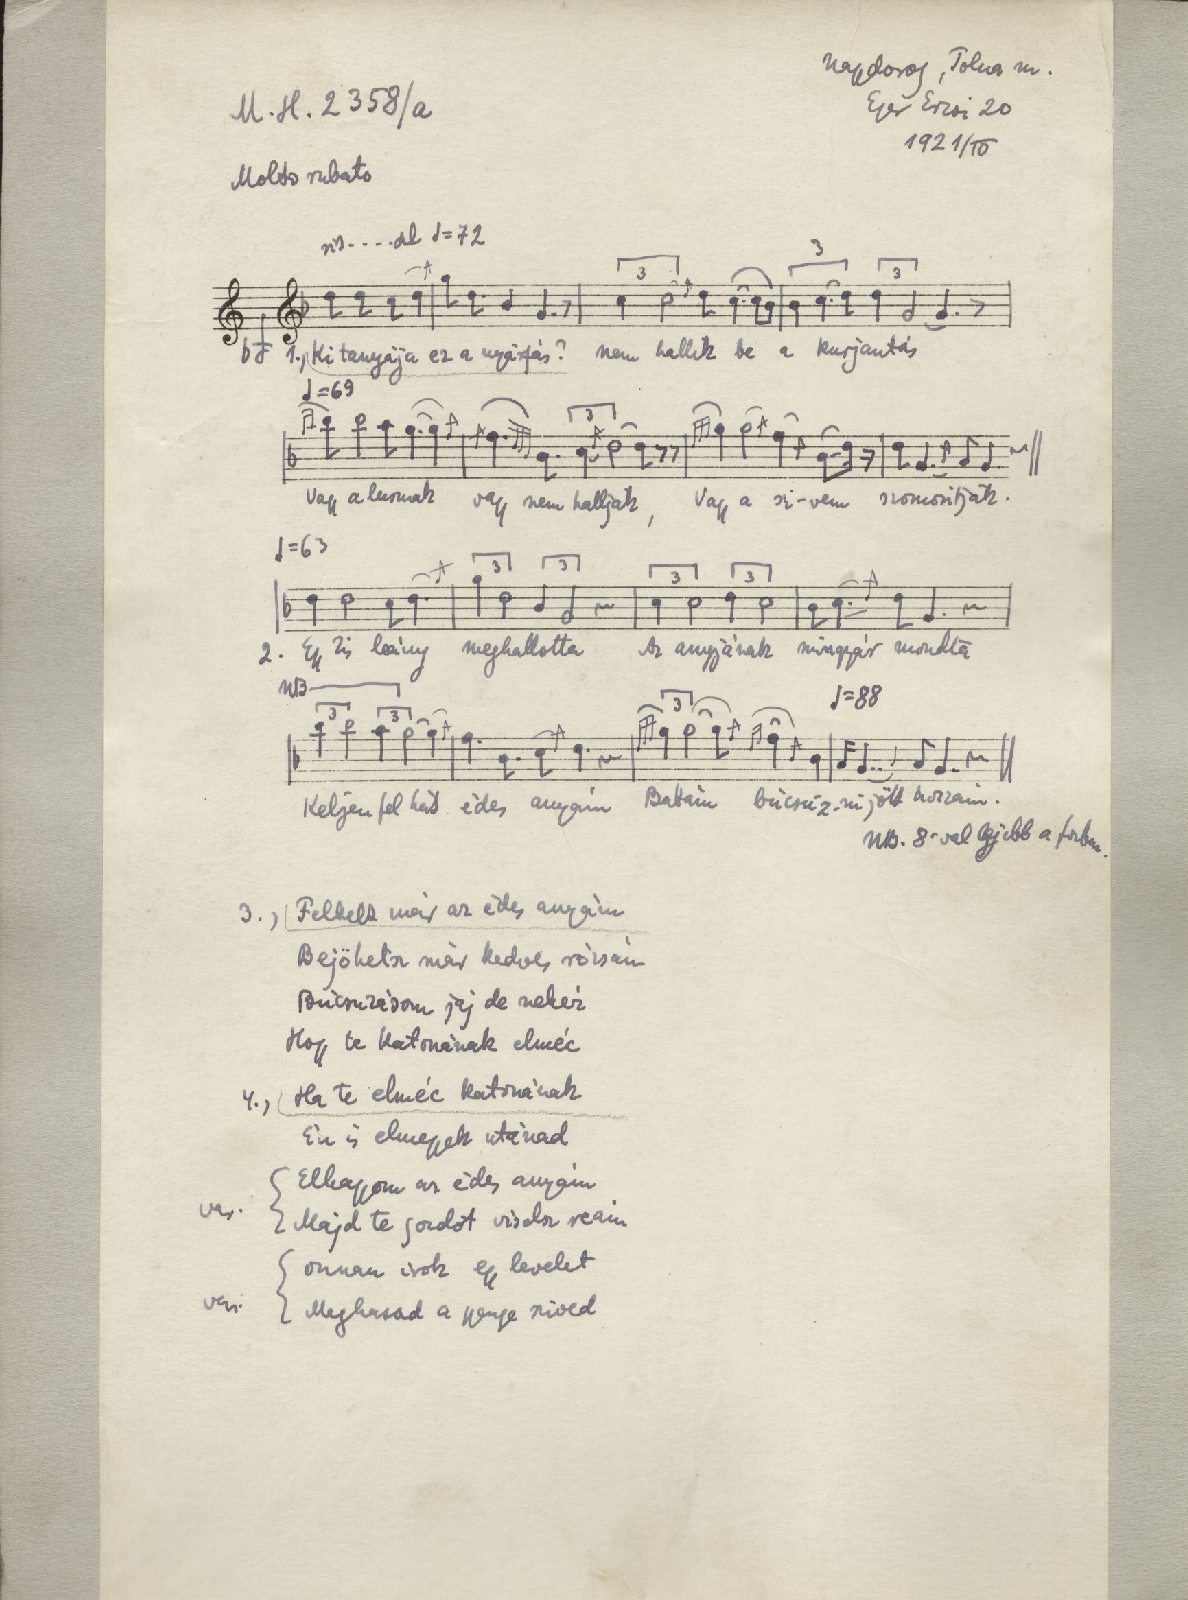 M.H. 2358/a
Nagydorog, Tolna m.
Egér Erzsi 20
1921/IV
Molto rubato
♩=72
3 3 3
1., Ki tanyája ez a nyárfás? nem hallik be a kurjantás
♩=69
3
Vagy alusznak vagy nem hallják, Vagy a szi-vem szomorítják.
♩=63
3 3 3 3
2. Egy kis leány meghallotta Az anyjának mingyár mondta
NB
3 3 3 ♩=88
Keljen fel hát édes anyám Babám búcsúz-ni jött hozzám.
NB. 8-val feljebb a forban.
3., Felkelt már az édes anyám
Bejöhetsz már kedves rózsám
Búcsuzásom jaj de nehéz
Hogy te katonának elméc
4., Ha te elméc katonának
Én is elmegyek utánad
Elhagyom az édes anyám
var.
Majd te gondot viselsz reám
onnan irok egy levelet
var.
Meghasad a gyenge szived